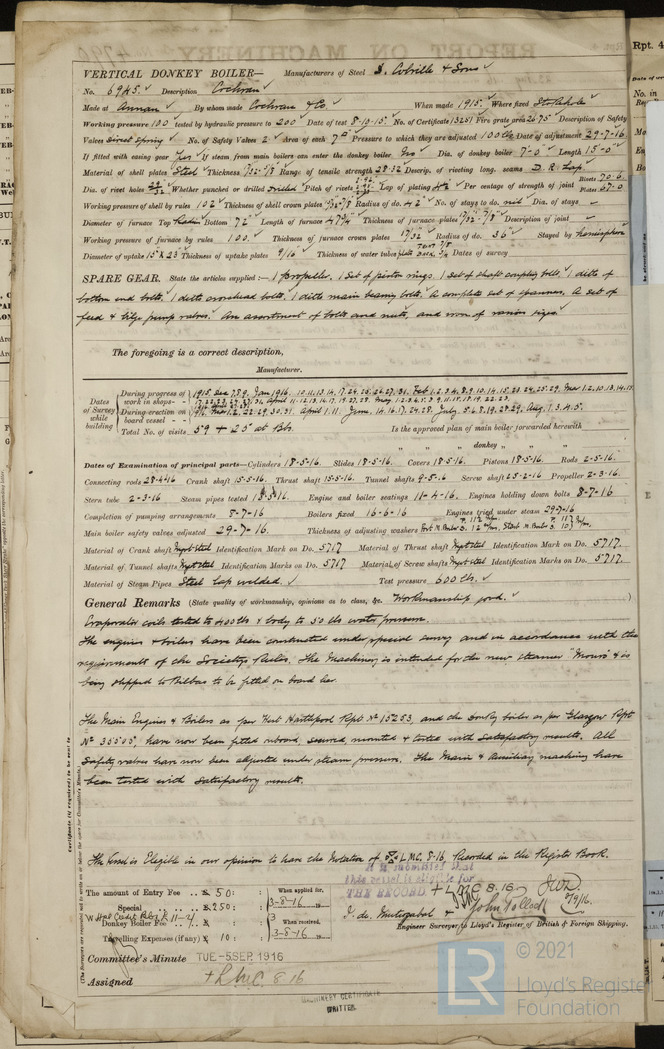 REPORT ON MACHINERY
Rpt. 4
VERTICAL DONKEY BOILER— Manufacturers of Steel D. Colville & Sons
No. 6945. Description Cochran
Made at Annan By whom made Cochran & Co. When made 1915. Where fixed Stokehole
Working pressure 100 tested by hydraulic pressure to 200 Date of test 8-10-15 No. of Certificate 13251 Fire grate area 26.75 Description of Safety
Valves direct spring No. of Safety Valves 2 Area of each 7" Pressure to which they are adjusted 100 lbs Date of adjustment 29-7-16.
If fitted with easing gear Yes If steam from main boilers can enter the donkey boiler No Dia. of donkey boiler 7'-0" Length 15'-0"
Material of shell plates Steel Thickness Range of tensile strength 28-32 Descrip. of riveting long. seams D. R. Lap
Dia. of rivet holes Whether punched or drilled drilled Pitch of rivets Lap of plating Per centage of strength of joint Rivets 70.6 Plates 67.0
Working pressure of shell by rules 102 Thickness of shell crown plates Radius of do. 42" No. of stays to do. nil Dia. of stays –
Diameter of furnace Top Bottom 72" Length of furnace 47¾" Thickness of furnace plates Description of joint –
Working pressure of furnace by rules 100. Thickness of furnace crown plates 17/32" Radius of do. 36" Stayed by hemisphere
Diameter of uptake 15" x 23 Thickness of uptake plates 9/16" Thickness of water tubes Dates of survey
SPARE GEAR. State the articles supplied:— 1 propeller. 1 set of piston rings 1 set of shaft coupling bolts. 1 ditto of
bottom end bolts. 1 ditto crosshead bolts. 1 ditto main bearing bolts. A complete set of spanners. A set of
feed & bilge pump valves. An assortment of bolts and nuts, and iron of various sizes.
The foregoing is a correct description,
Manufacturer.
Dates of Survey while building
During progress of work in shops - - 1915. Dec 7.8.9. Jan 1916. 10.11.13.14.17.24.25.26.27.31. Feb 1.2.3.4.8.9.10.14.15.23.24.25.29. Mar 1.2.10.13.14.15.
During erection on board vessel - - 1916 Mar 1.2.22.29.30.31. April 1.11. June. 14.16.17.24.28. July. 5.6.8.19.28.29. Aug. 1.3.4.5.
Total No. of visits 59 + 25 at Bbo. Is the approved plan of main boiler forwarded herewith
" " " donkey " " "
Dates of Examination of principal parts—Cylinders 18-5-16. Slides 18-5-16. Covers 18-5-16. Pistons 18-5-16. Rods 2-5-16.
Connecting rods 28-4-16 Crank shaft 15-5-16. Thrust shaft 15-5-16. Tunnel shafts 9-5-16 Screw shaft 25-2-16 Propeller 2-3-16.
Stern tube 2-3-16 Steam pipes tested Engine and boiler seatings 11-4-16. Engines holding down bolts 8-7-16
Completion of pumping arrangements 8-7-16 Boilers fixed 16-6-16 Engines tried under steam 29-7-16
Main boiler safety valves adjusted 29-7-16. Thickness of adjusting washers
Material of Crank shaft Ingot steel Identification Mark on Do. 5717 Material of Thrust shaft Ingot steel Identification Mark on Do. 5717.
Material of Tunnel shafts Ingot steel Identification Marks on Do. 5717 Material of Screw shafts Ingot steel Identification Marks on Do. 5717.
Material of Steam Pipes Steel lap welded. Test pressure 600 lbs.
General Remarks (State quality of workmanship, opinions as to class, &c. Workmanship good.)
Evaporator coils tested to 400 lbs & body to 50 lbs water pressure.
The engines & boilers have been constructed under special survey and in accordance with the
requirements of the Societys Rules. The Machinery is intended for the new steamer "Mouro" & is
being shipped to Bilbao to be fitted on board her.
The Main Engines & Boilers as per West Hartlepool Rpt No 15253, and the Donkey boiler as per Glasgow Rpt
No 35505, have now been fitted onboard, secured, mounted & tested with satisfactory results. All
safety valves have now been adjusted under steam pressure. The Main & Auxiliary machinery have
been tested with satisfactory results.
The Vessel is Eligible in our opinion to have the Notation of + L.M.C. 8-16, Recorded in the Register Book.
It is submitted that
this vessel is eligible for
THE RECORD. + LMC 8.16.
The amount of Entry Fee .. £ 50 :
Special .. £ 250 :
Donkey Boiler Fee .. £
Travelling Expenses (if any) £ 10 :
When applied for,
3-8-16
When received,
3-8-16
John Pollock
Engineer Surveyor to Lloyd's Register of British & Foreign Shipping.
Committee's Minute TUE-5 SEP 1916
Assigned + L.M.C. 8.16
MACHINERY CERTIFICATE
WRITTEN.
Certificate (if required) to be sent to
(The Surveyors are requested not to write on or below the space for Committee's Minute.)
LR
© 2021
Lloyd's Register
Foundation